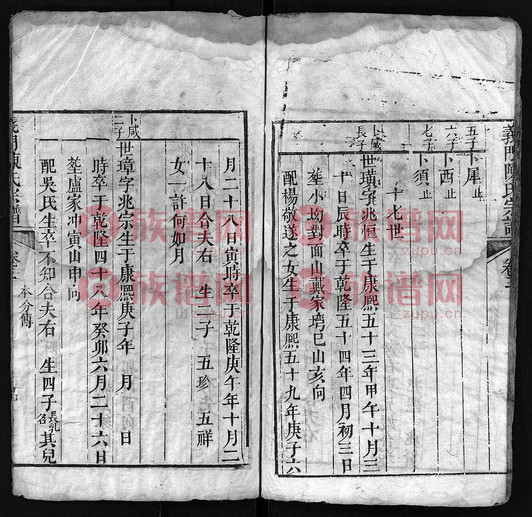 義門陳氏宗譜
卷三
五子 卜犀止
六子 卜西止
七子 卜須止
十七世
長子 世璜字兆恒生于康熙五十三年甲午十月三
十日辰時卒于乾隆五十四年四月初三日
塟小坳對面山戴家塆巳山亥向
配楊敬送之女生于康熙五十九年庚子六
月二十八日寅時卒于乾隆庚午年十月二
十八日合夫右 生二子 五珍 五祥
女一許何如月
卜咸二子 世璋字兆宗生于康熙庚子年 月 日
時卒于乾隆四十八年癸卯六月二十六日
塟盧家冲寅山申向
配吳氏生卒不知合夫右 生四子 長乳名其兒
義門陳氏宗譜
本分傳
族谱网
zupu.cn